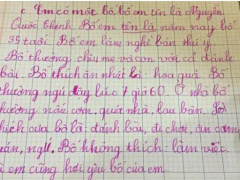 Em có một bố, bố em tên là Nguyễn
Quốc Khánh. Bố em tên là năm nay bố
35 tuổi. Bố em làm nghề bán thú y.
Bố thường chịu mẹ và con với cả đánh
bầu. Bố thích ăn nhất là hoa quả. Bố
thường ngủ dậy lúc 7 giờ 60. Ở nhà bố
thường nấu cơm, quét nhà, lau bàn. Sở
thích của bố là: đánh bầu, đi chơi, ăn cơm
ngủ. Bố không thích: làm việc.
em cũng hơi yêu bố của em.